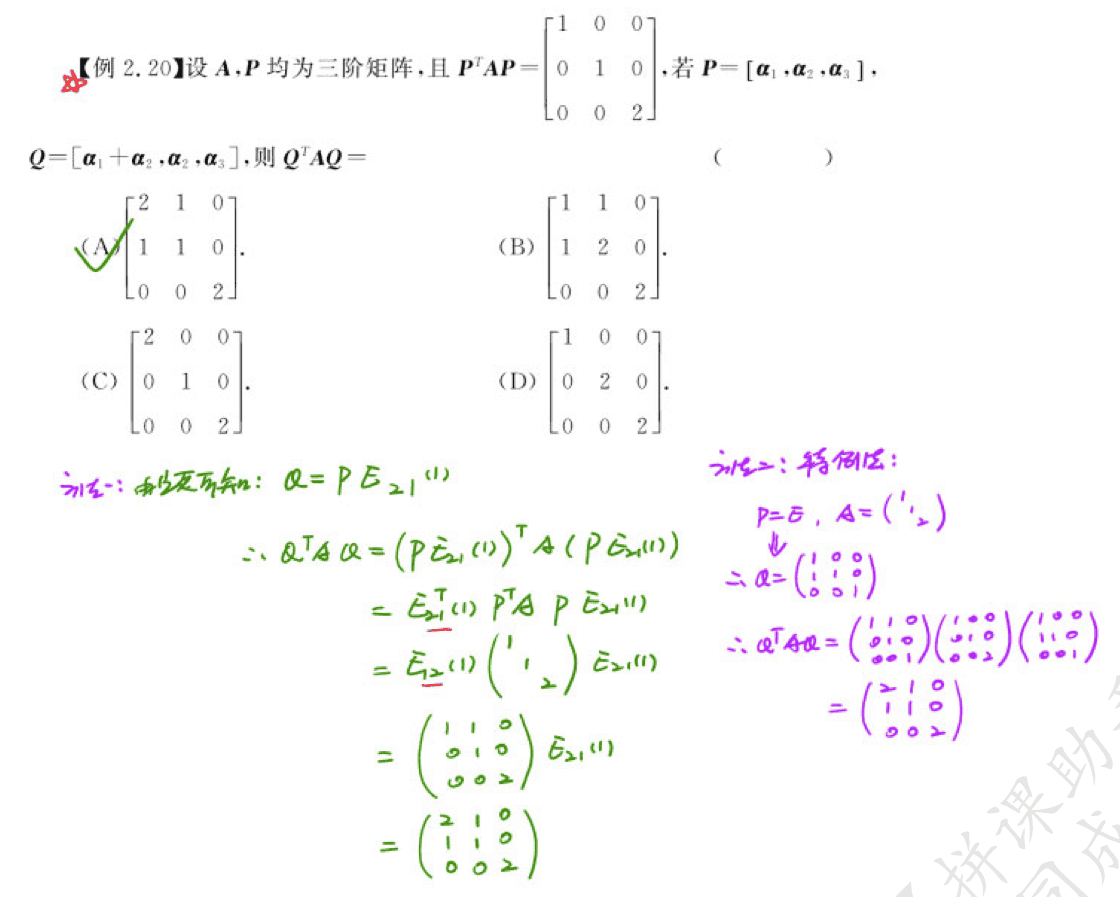 【例 2.20】设 A,P 均为三阶矩阵,且 PᵀAP=
⎡1 0 0⎤
⎢0 1 0⎥
⎣0 0 2⎦
,若 P=[α₁,α₂,α₃],
Q=[α₁+α₂,α₂,α₃],则 QᵀAQ= ( )
(A)
⎡2 1 0⎤
⎢1 1 0⎥
⎣0 0 2⎦.
(B)
⎡1 1 0⎤
⎢1 2 0⎥
⎣0 0 2⎦.
(C)
⎡2 0 0⎤
⎢0 1 0⎥
⎣0 0 2⎦.
(D)
⎡1 0 0⎤
⎢0 2 0⎥
⎣0 0 2⎦.
法一: 可知: Q=PE₂₁(1)
∴ QᵀAQ=(PE₂₁(1))ᵀA(PE₂₁(1))
=E₂₁ᵀ(1)PᵀAPE₂₁(1)
=E₁₂(1)(1 1 2)E₂₁(1)
=
(1 1 0
0 1 0
0 0 2)E₂₁(1)
=
(2 1 0
1 1 0
0 0 2)
法二:特例法:
P=E, A=(1 1 2)
↓
∴ Q=
(1 0 0
1 1 0
0 0 1)
∴ QᵀAQ=
(1 1 0 (1 0 0 (1 0 0
0 1 0 0 1 0 1 1 0
0 0 1) 0 0 2) 0 0 1)
=
(2 1 0
1 1 0
0 0 2)
拼课助
同成